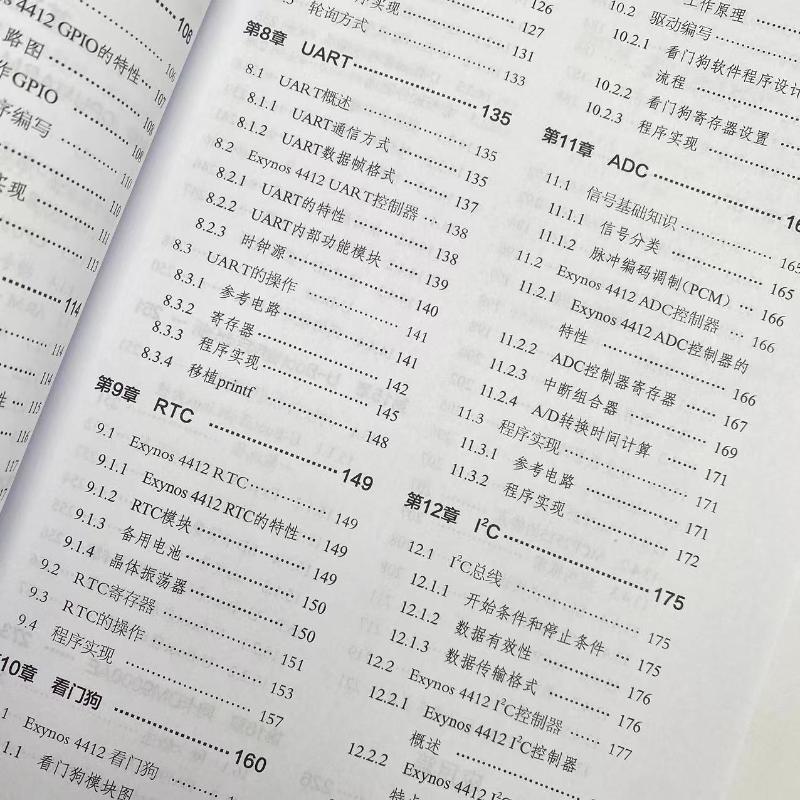 108
4412 GPIO的特性 106
路图 107
作GPIO 108
序编写 109
110
实现 110
111
113
114
114
114
115
116
117
117
序实现 126
轮询方式 127
131
133
第8章 UART 135
8.1 UART概述 135
8.1.1 UART通信方式 135
8.1.2 UART数据帧格式 137
8.2 Exynos 4412 UART控制器 138
8.2.1 UART的特性 138
8.2.2 UART内部功能模块 139
8.2.3 时钟源 140
8.3 UART的操作 141
8.3.1 参考电路 141
8.3.2 寄存器 142
8.3.3 程序实现 145
8.3.4 移植printf 148
第9章 RTC 149
9.1 Exynos 4412 RTC 149
9.1.1 Exynos 4412 RTC的特性 149
9.1.2 RTC模块 149
9.1.3 备用电池 150
9.1.4 晶体振荡器 150
9.2 RTC寄存器 151
9.3 RTC的操作 153
9.4 程序实现 157
10章 看门狗 160
1 Exynos 4412 看门狗
1.1 看门狗模块图
工作原理
10.2 驱动编写
10.2.1 看门狗软件程序设计
流程
10.2.2 看门狗寄存器设置
10.2.3 程序实现
第11章 ADC
11.1 信号基础知识 165
11.1.1 信号分类 165
11.1.2 脉冲编码调制(PCM) 166
11.2 Exynos 4412 ADC控制器 166
11.2.1 Exynos 4412 ADC控制器的
特性 166
11.2.2 ADC控制器寄存器 167
11.2.3 中断组合器 169
11.2.4 A/D转换时间计算 171
11.3 程序实现 171
11.3.1 参考电路 171
11.3.2 程序实现 172
第12章 I²C 175
12.1 I²C总线 175
12.1.1 开始条件和停止条件 175
12.1.2 数据有效性 176
12.1.3 数据传输格式 176
12.2 Exynos 4412 I²C控制器 177
12.2.1 Exynos 4412 I²C控制器
概述
12.2.2 Exynos 4412 I²C控制器